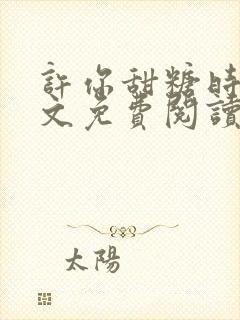 許你甜糖時
文免費閱讀
太陽